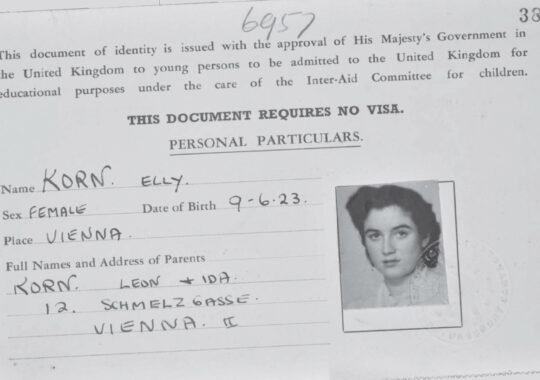 6957
38
This document of identity is issued with the approval of His Majesty's Government in
the United Kingdom to young persons to be admitted to the United Kingdom for
educational purposes under the care of the Inter-Aid Committee for children.
THIS DOCUMENT REQUIRES NO VISA.
PERSONAL PARTICULARS.
Name KORN. ELLY.
Sex FEMALE Date of Birth 9-6-23.
Place VIENNA.
Full Names and Address of Parents
KORN. LEON + IDA.
12. SCHMELZGASSE.
VIENNA. II